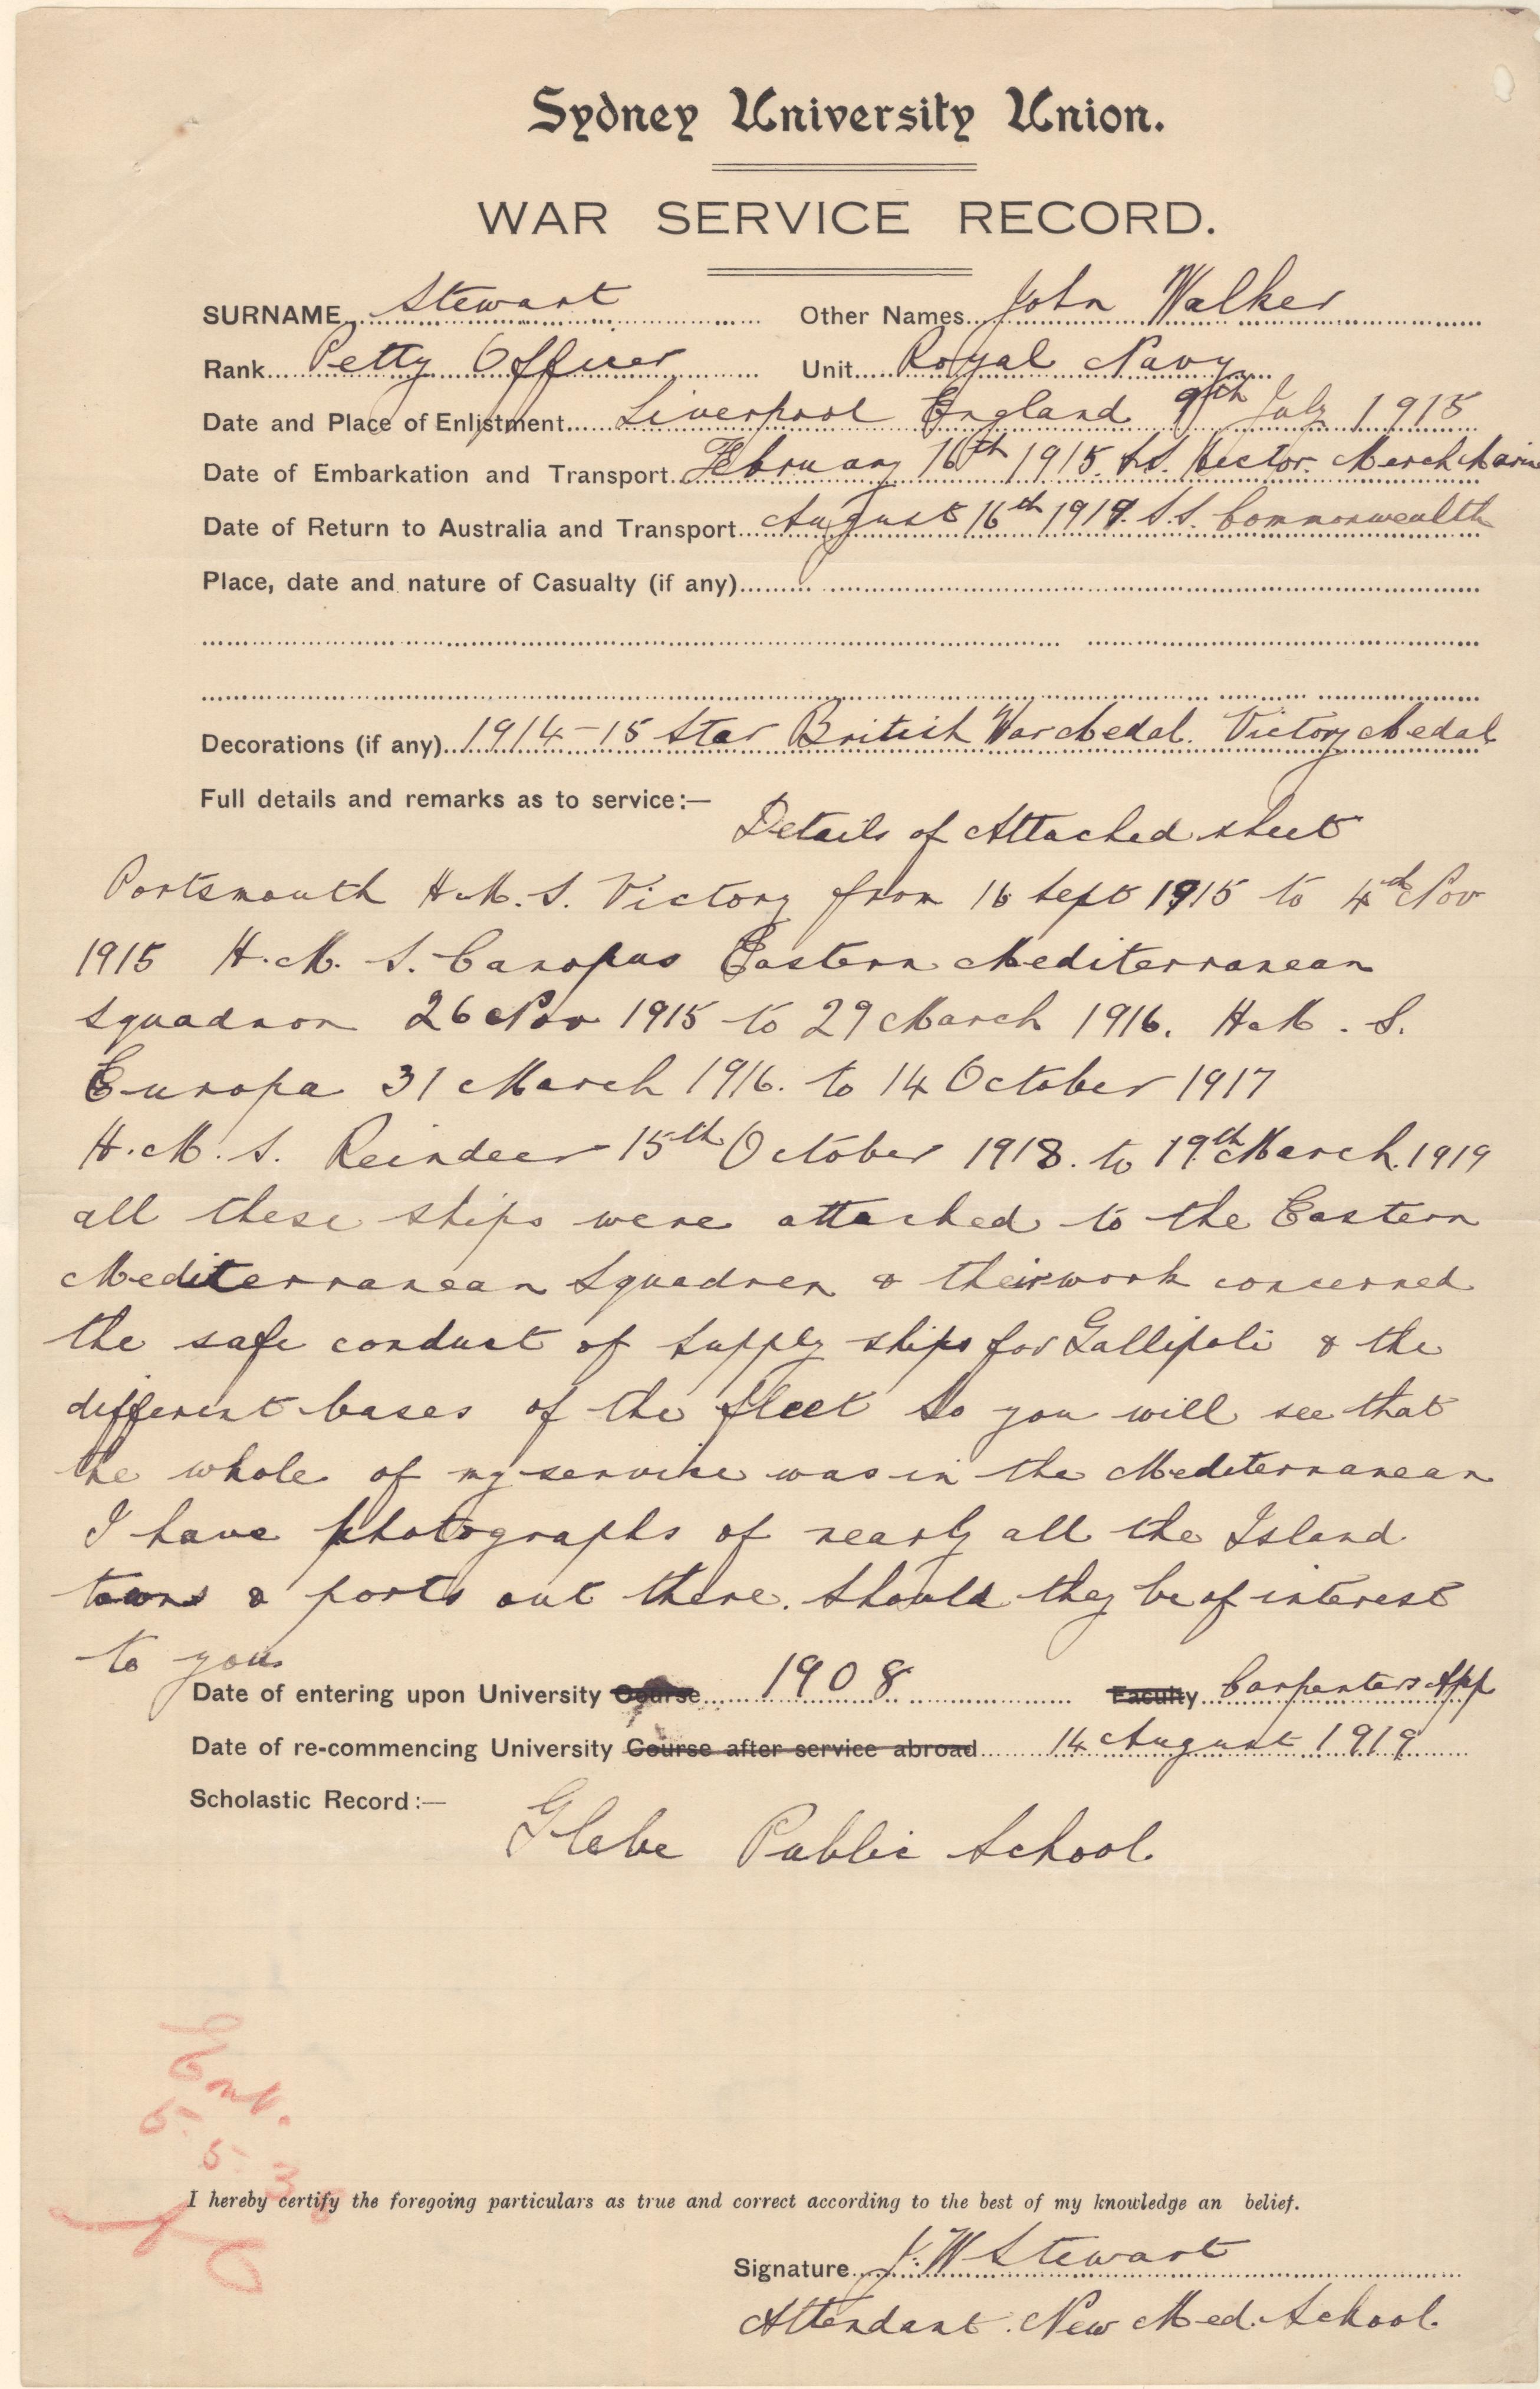 Sydney University Union.
WAR SERVICE RECORD.
SURNAME Stewart Other Names John Walker
Rank Petty Officer Unit Royal Navy
Date and Place of Enlistment Liverpool England 9th July 1915
Date of Embarkation and Transport February 16th 1915. S.S. Hector. Merch Marin
Date of Return to Australia and Transport August 16th 1919. S.S. Commonwealth
Place, date and nature of Casualty (if any)
Decorations (if any) 1914-15 Star British War Medal. Victory Medal
Full details and remarks as to service:—
Details of Attached sheet
Portsmouth H.M.S. Victory from 16 Sept 1915 to 4th Nov
1915 H.M.S. Canopus Eastern Mediterranean
Squadron 26 Nov 1915 to 29 March 1916. H.M.S.
Europa 31 March 1916. to 14 October 1917
H.M.S. Reindeer 15th October 1918. to 19th March. 1919
all these ships were attached to the Eastern
Mediterranean Squadron & their work concerned
the safe conduct of supply ships for Gallipoli & the
different bases of the fleet So you will see that
the whole of my service was in the Mediterranean
I have photographs of nearly all the Island
towns & ports out there. Should they be of interest
to you
Date of entering upon University Course 1908 Faculty Carpenters App
Date of re-commencing University Course after service abroad 14 August 1919
Scholastic Record:—
Glebe Public School.
Ent.
5.
5
3
I hereby certify the foregoing particulars as true and correct according to the best of my knowledge an belief.
Signature J. W Stewart
Attendant. New Med. School.